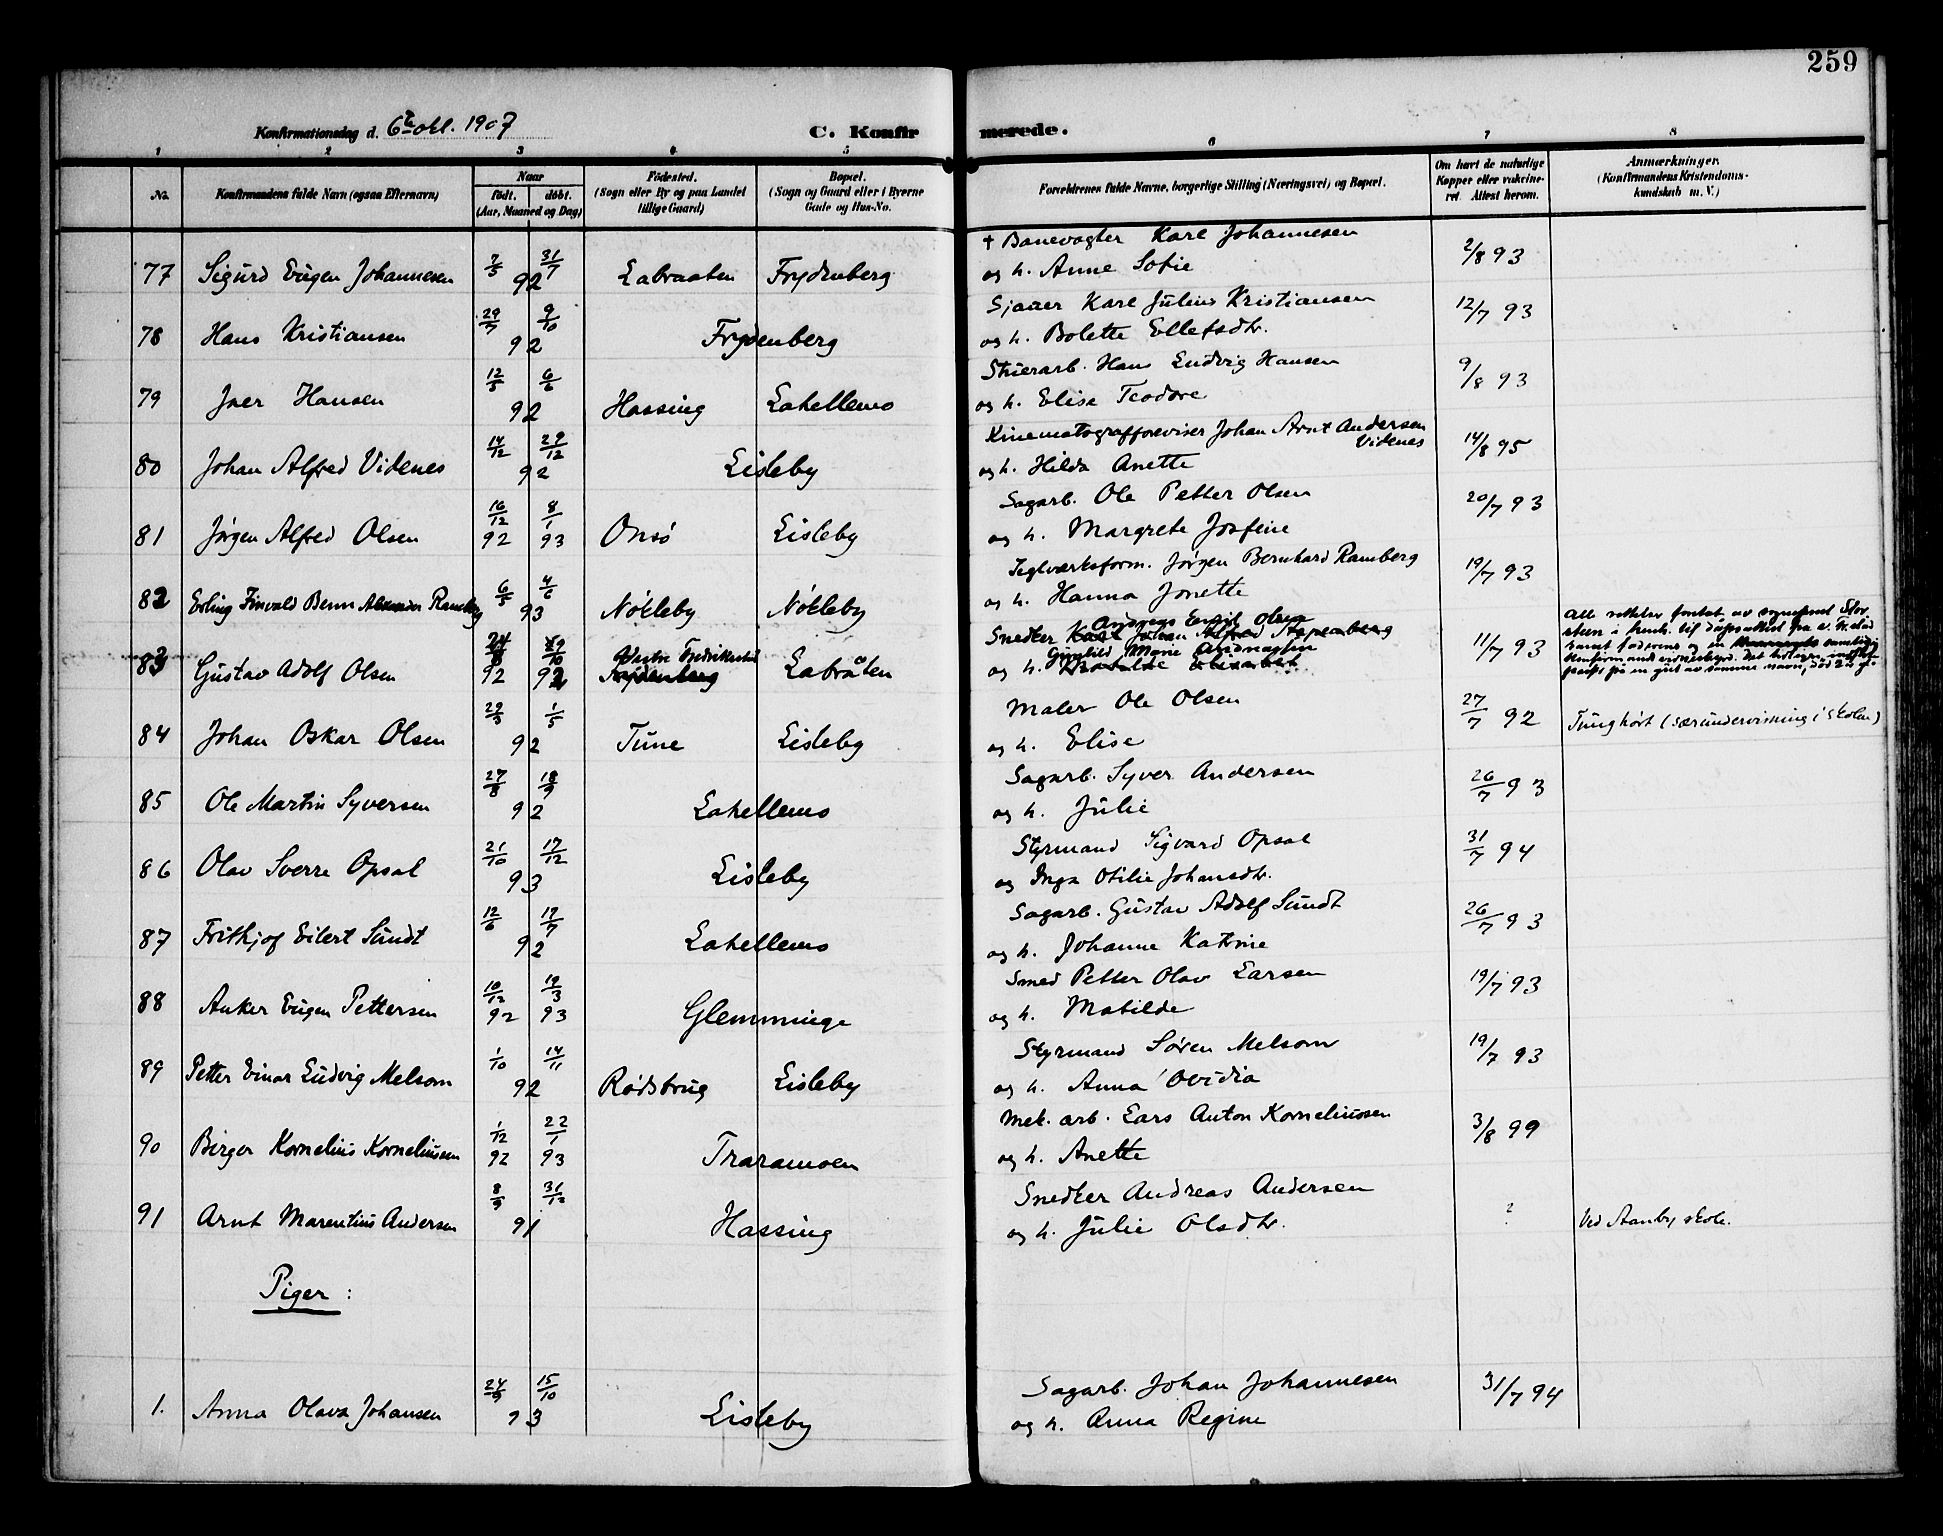 259
Konfirmationsdag d. 6te okt. 1907
C. Konfirmerede.
1 2 3 4 5 6 7 8
No. Konfirmandens fulde Navn (ogsaa Efternavn) Naar født. døbt. (Aar, Maaned og Dag) Fødested. (Sogn eller By og paa Landet tillige Gaard) Bopæl. (Sogn og Gaard eller i Byerne Gade og Hus-No. Forældrenes fulde Navne, borgerlige Stilling (Næringsvei) og Bopæl. Om havt de naturlige Kopper eller vakcineret Attest herom. Anmærkninger. (Konfirmandens Kristendomskundskab m. V.)
† Banevogter Karl Johannesen
77 Sigurd Eugen Johannesen 7/5 31/7 92 Labraaten Frydenberg og h. Anne Sofie 2/8 93
Sjauer Karl Julius Kristiansen
78 Hans Kristiansen 29/7 9/10 92 Frydenberg og h. Bolette Ellefsdtr. 12/7 93
Stuerarb. Hans Ludvig Hansen
79 Iver Hansen 12/5 6/6 92 Hassing Lahellemo og h. Elise Teodore 9/8 93
Kinematograffforeviser Johan Arnt Andersen Videnes
80 Johan Alfred Videnes 14/12 29/12 92 Lisleby og h. Hilda Anette 14/8 95
Sagarb. Ole Petter Olsen
81 Jørgen Alfred Olsen 16/12 92 8/1 93 Onsø Lisleby og h. Margrete Josfine 20/7 93
Teglværksform. Jørgen Bernhard Ramberg
82 Erling Finvald Bernn Alexander Ramberg 6/5 4/6 93 Nökleby Nökleby og h. Hanna Jonette 19/7 93
Andreas Emil Olsen
Snedker Karl Johan Alfred
Gunhild Marie
83 Gustav Adolf Olsen 92 92 Vestre Fredrikstad Frydenberg Labråten og h. 11/7 93
Maler Ole Olsen
84 Johan Oskar Olsen 29/3 1/5 92 Tune Lisleby og h. Elise 27/7 92 Tunghört (særundervisning i skolen)
Sagarb. Syver Andersen
85 Ole Martin Syversen 27/8 18/9 92 Lahellemo og h. Julie 26/7 93
Styrmand Sigvard Opsal
86 Olav Sverre Opsal 21/10 17/12 93 Lisleby og Inga Otilie Johansdtr. 31/7 94
Sagarb. Gustav Adolf Sundt
87 Frithjof Eilert Sundt 12/6 17/7 92 Lahellemo og h. Johanne Katrine 26/7 93
Smed Petter Olav Larsen
88 Anker Eugen Pettersen 10/12 92 19/3 93 Glemminge og h. Matilde 19/7 93
Styrmand Søren Melsom
89 Petter Einar Ludvig Melsom 1/10 14/11 92 Rødsbrug Lisleby og h. Anna Ovidia 19/7 93
Mek. arb. Lars Anton Korneliussen
90 Birger Kornelius Korneliussen 1/12 92 22/1 93 Traramoen og h. Anette 3/8 99
Snedker Andreas Andersen
91 Arnt Marentius Andersen 8/9 31/12 91 Hassing og h. Julie Olsdtr. ? Ved Aanby skole.
Piger:
Sagarb. Johan Johannesen
1. Anna Olava Johansen 24/9 15/10 93 Lisleby og h. Anna Regine 31/7 94